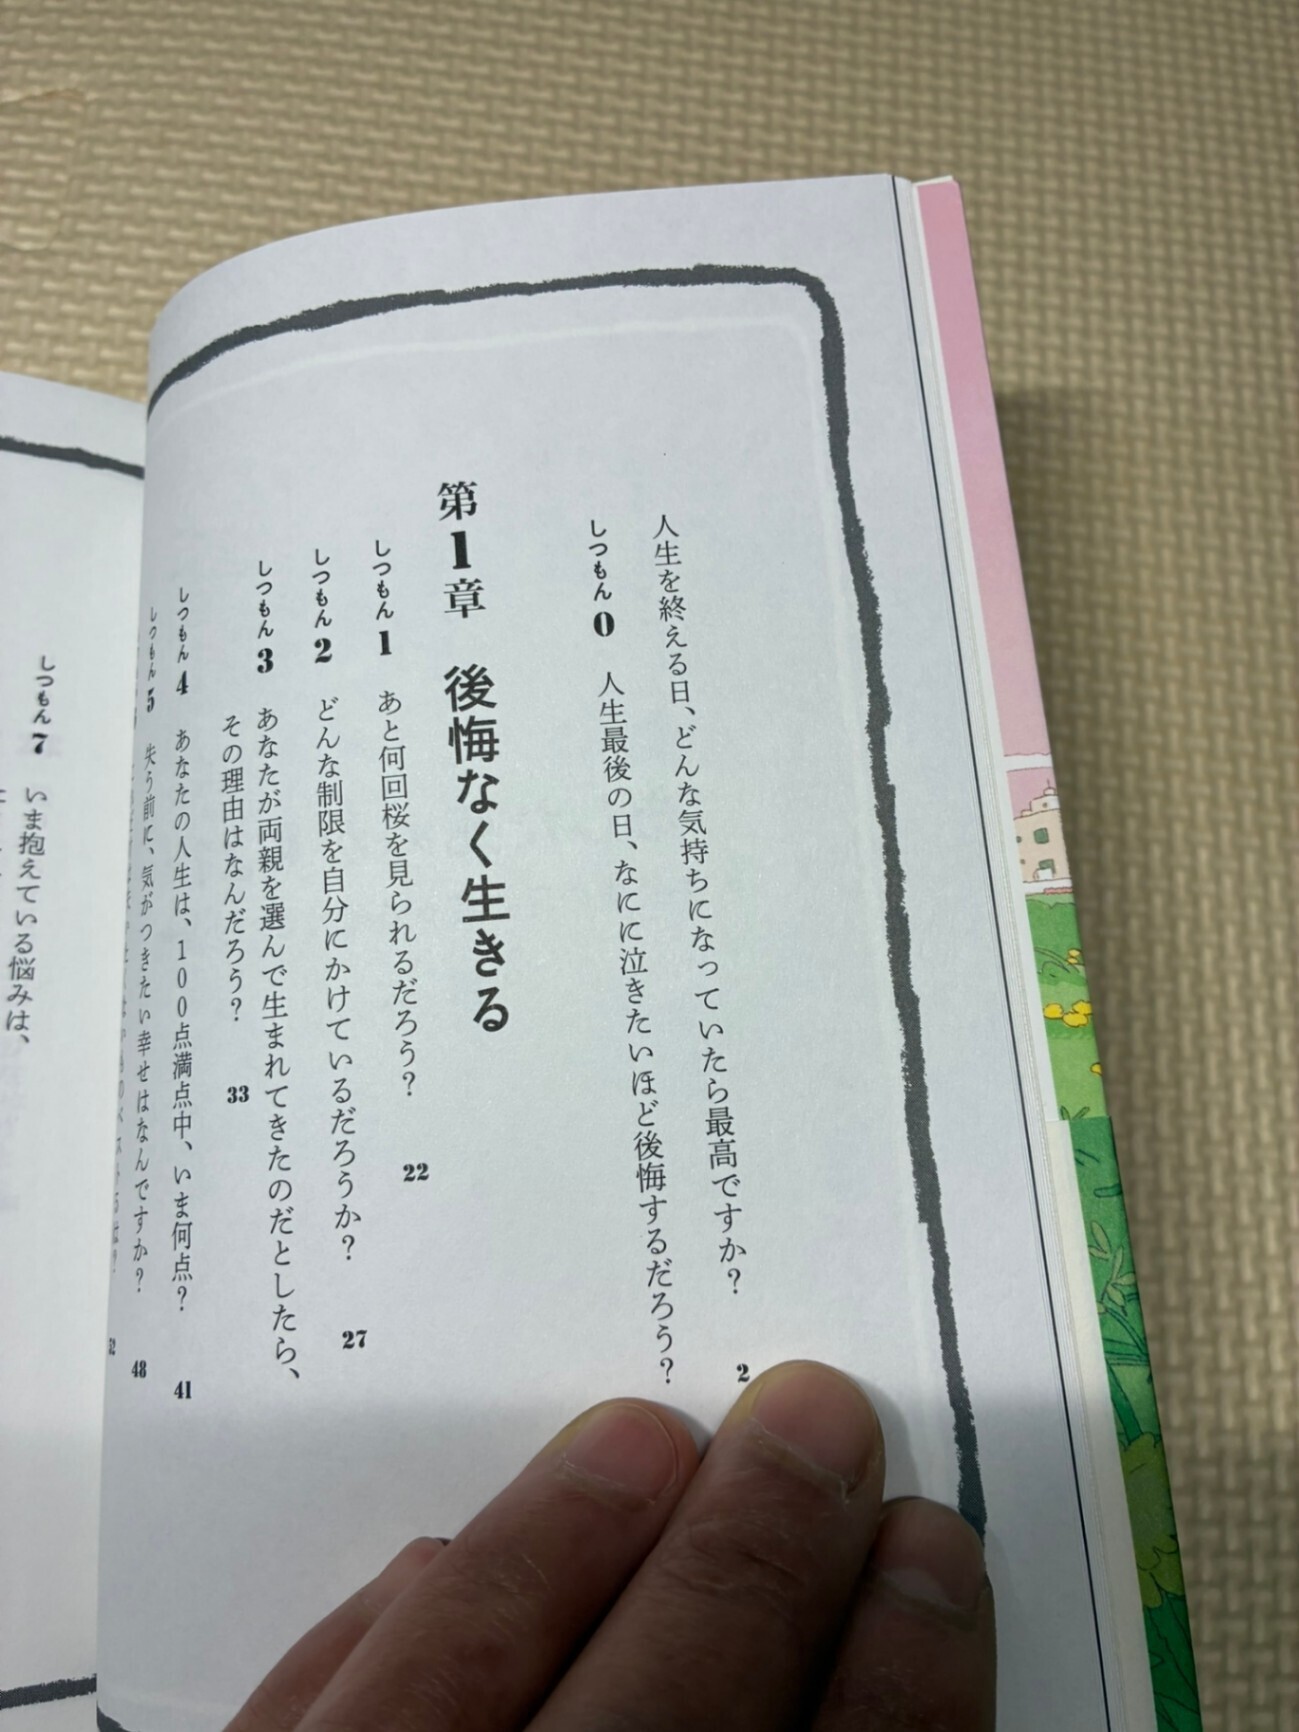 人生を終える日、どんな気持ちになっていたら最高ですか？ 2
しつもん 0 人生最後の日、なにに泣きたいほど後悔するだろう？
第1章 後悔なく生きる
しつもん 1 あと何回桜を見られるだろう？ 22
しつもん 2 どんな制限を自分にかけているだろうか？ 27
しつもん 3 あなたが両親を選んで生まれてきたのだとしたら、
その理由はなんだろう？ 33
しつもん 4 あなたの人生は、100点満点中、いま何点？ 41
しつもん 5 失う前に、気がつきたい幸せはなんですか？ 48
52
しつもん 7 いま抱えている悩みは、